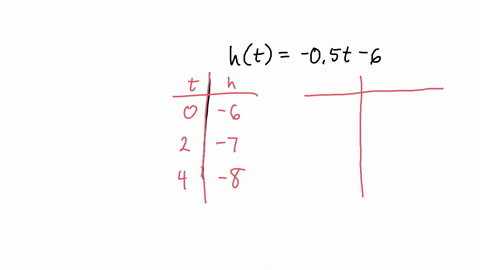 h(t) = -0.5t - 6
t h
0 -6
2 -7
4 -8